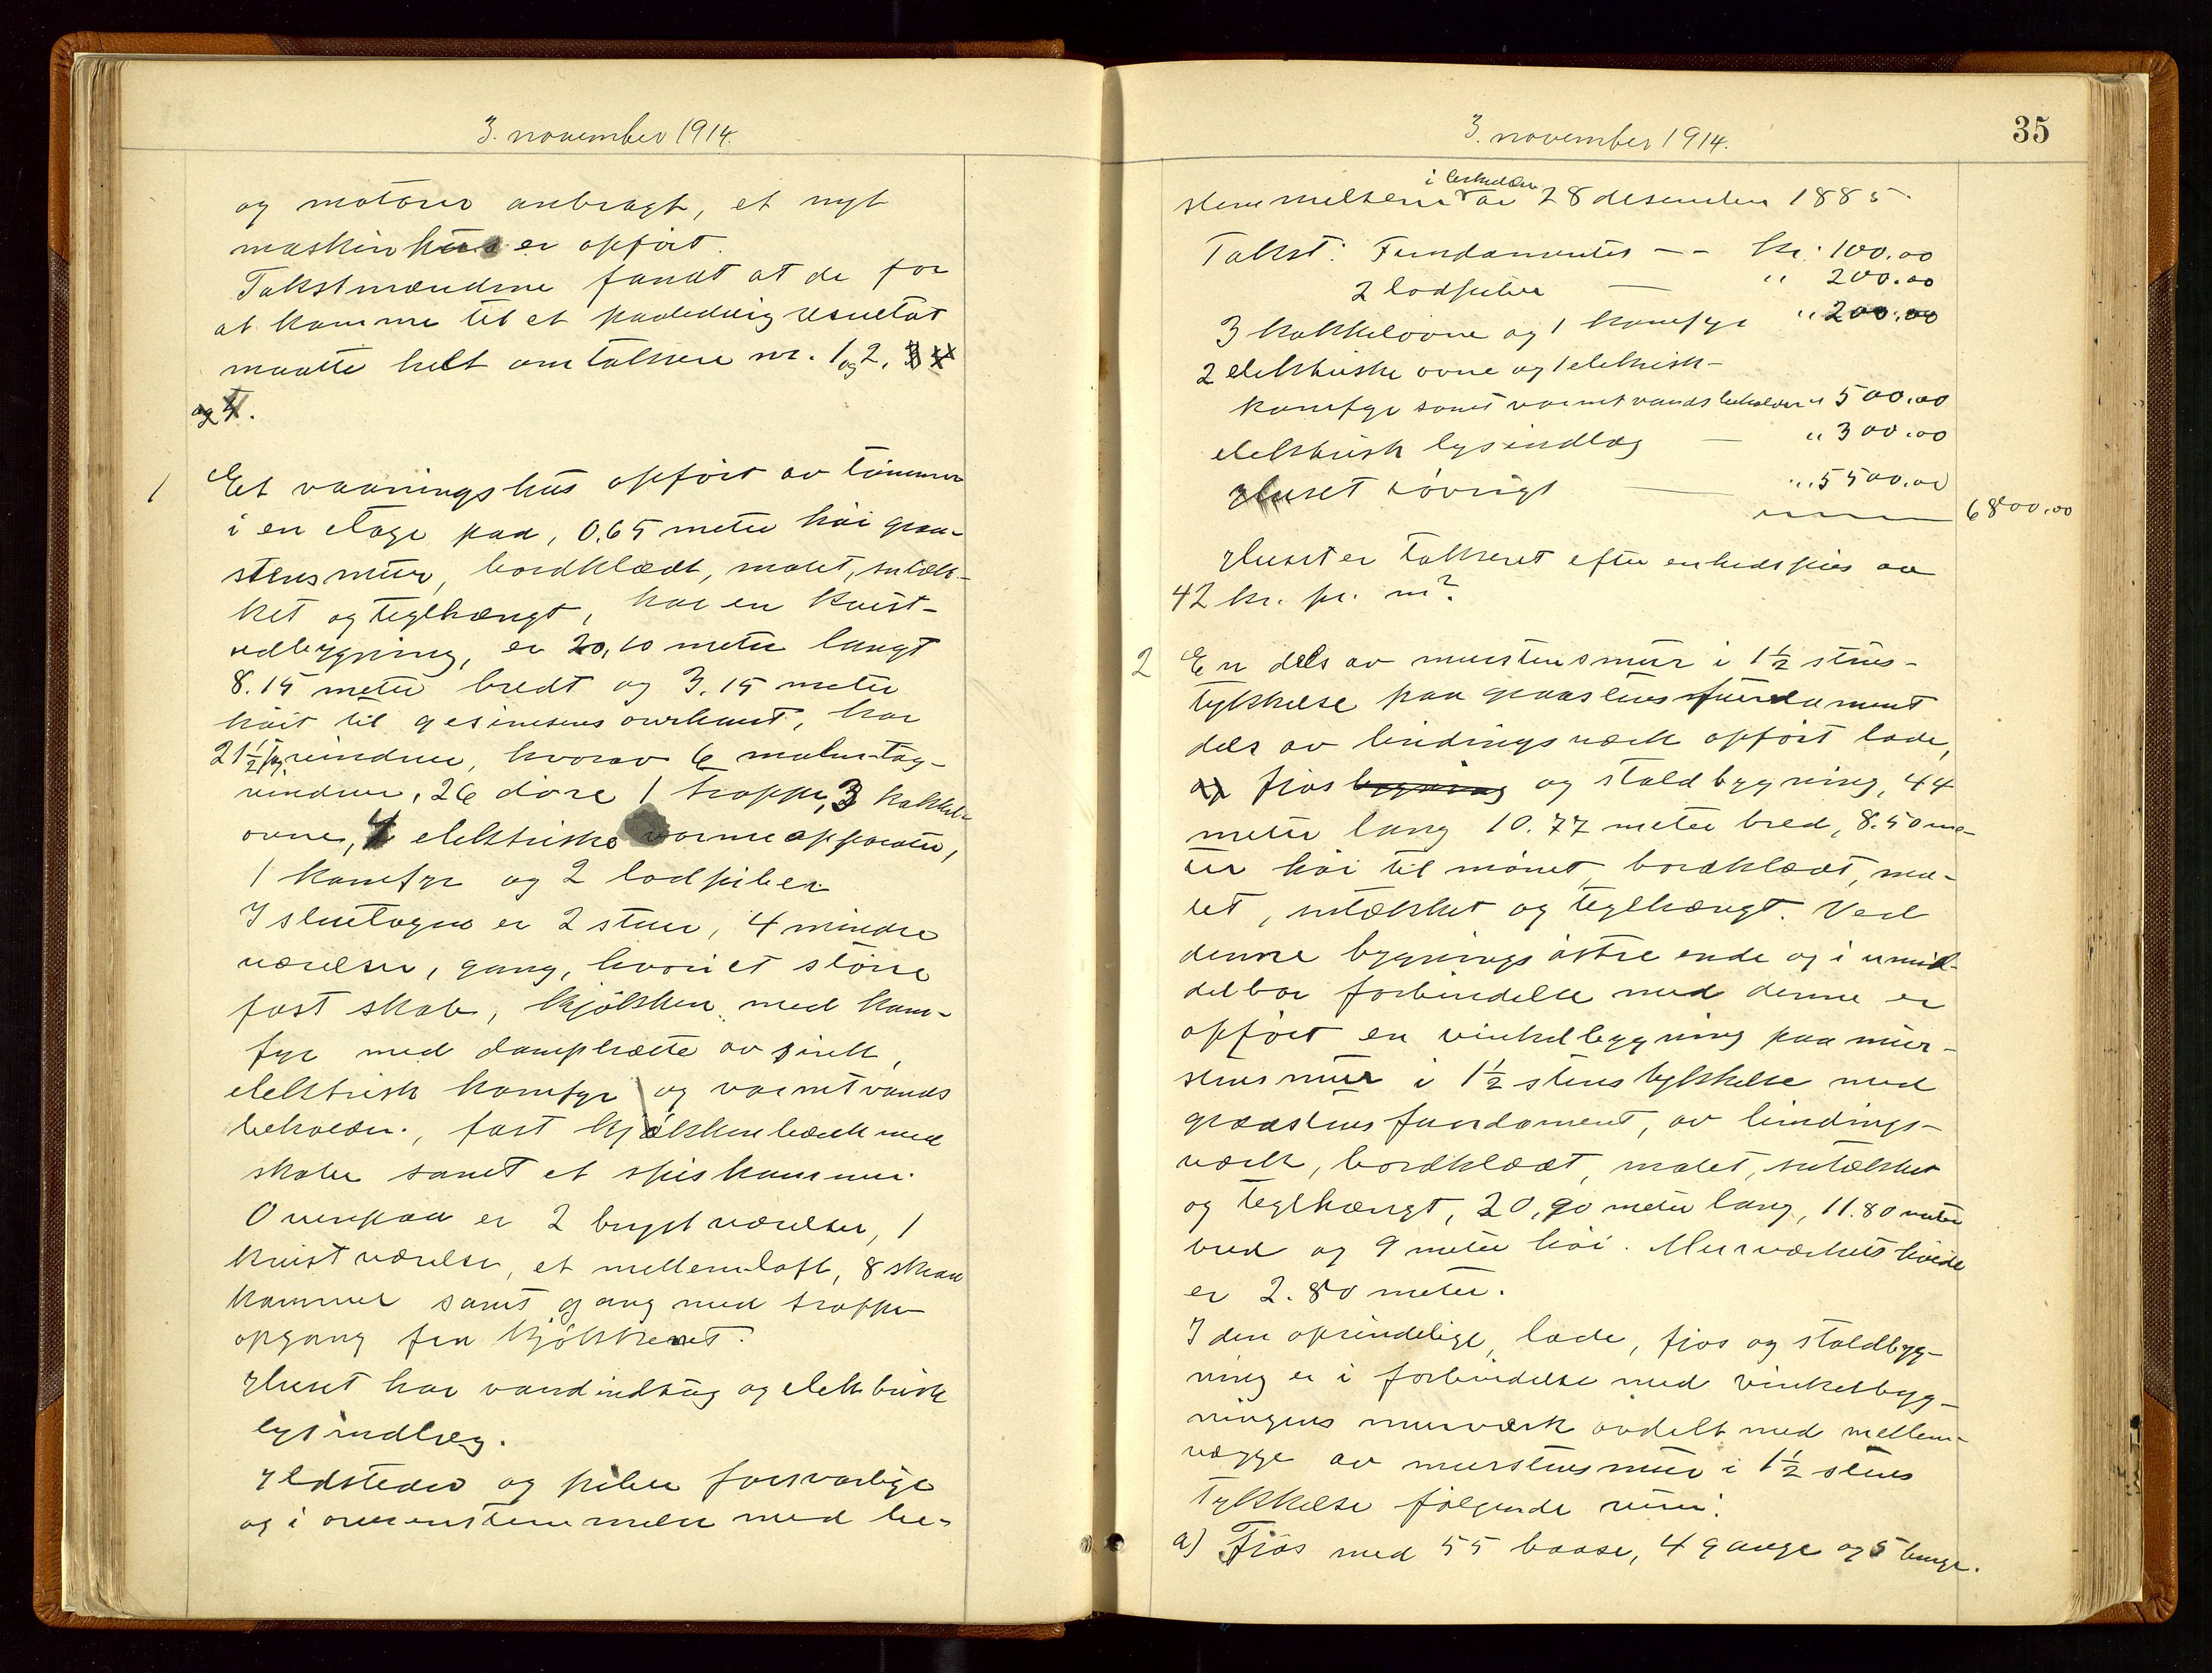 3. november 1914.
og motorer anbragt, et nyt
maskinhus er opført.
Takstmændene fandt at de for
at komme til et paalidelig resultat
maatte helt omtaksere nr. 1 og 2.
1 Et vaaningshus opført av tømmer
i en etage paa, 0.65 meter høi graa-
stensmur, bordklædt, malet, sutæk-
ket og teglhængt, har en kvist-
utbygning, er 20,10 meter langt
8.15 meter bredt og 3.15 meter
høit til gesimsens overkant, har
21½ fag vinduer, hvorav 6 tag-
vinduer, 26 døre 1 trappe, 3 kakkel-
ovne, 4 elektriske varmeapparater,
1 komfyr og 2 lodpiber.
I stueetagen er 2 stuer, 4 mindre
værelser, gang, hvori et større
fast skab, kjøkken med kom-
fyr med damphætte av sink,
elektrisk komfyr og varmtvands
beholder, fast kjøkkenbænk med
skabe samt et spiskammer.
Ovenpaa er 2 brystværelser, 1
kvistværelse, et mellemloft, 8 skraa
kammer samt gang med trappe
opgang fra kjøkkenet.
Huset har vandindlæg og elektrisk
lysindlæg.
Ildsteder og piber forsvarlige
og i overenstemmelse med be-
3. november 1914.
35
stemmelserne i beskeden av 28 desember 1885
Takst: Fundamentet -- kr. 100.00
2 lodpiber — " 200.00
3 kakkelovne og 1 komfyr " 200.00
2 elektriske ovne og 1 elektrisk-
komfyr samt varmtvandsbeholder " 500.00
elektrisk lysindlæg — " 300.00
Huset iøvrigt — " 5500.00
6800.00
Huset er takseret efter enhedspris av
42 kr. pr. m².
2 En dels av murstensmur i 1½ stens-
tykkelse paa graastensfundament
dels av bindingsværk opført lade,
fjøs bygning og staldbygning, 44
meter lang 10.77 meter bred, 8.50 me-
ter høi til mønet, bordklædt, ma-
let, sutækket og teglhængt. Ved
denne bygnings østre ende og i umid-
delbar forbindelse med denne er
opført en vinkelbygning paa mur-
stensmur i 1½ stens tykkelse med
graastensfundament, av bindings-
værk, bordklædt, malet, sutækket
og teglhængt, 20,90 meter lang, 11.80 meter
bred og 9 meter høi. Murværkets høide
er 2.80 meter.
I den oprindelige, lade, fjøs og staldbyg-
ning er i forbindelse med vinkelbyg-
ningens murværk avdelt med mellem-
vægge av murstensmur i 1½ stens
tykkelse følgende rum:
a) Fjøs med 55 baase, 4 gange og 5 binge.